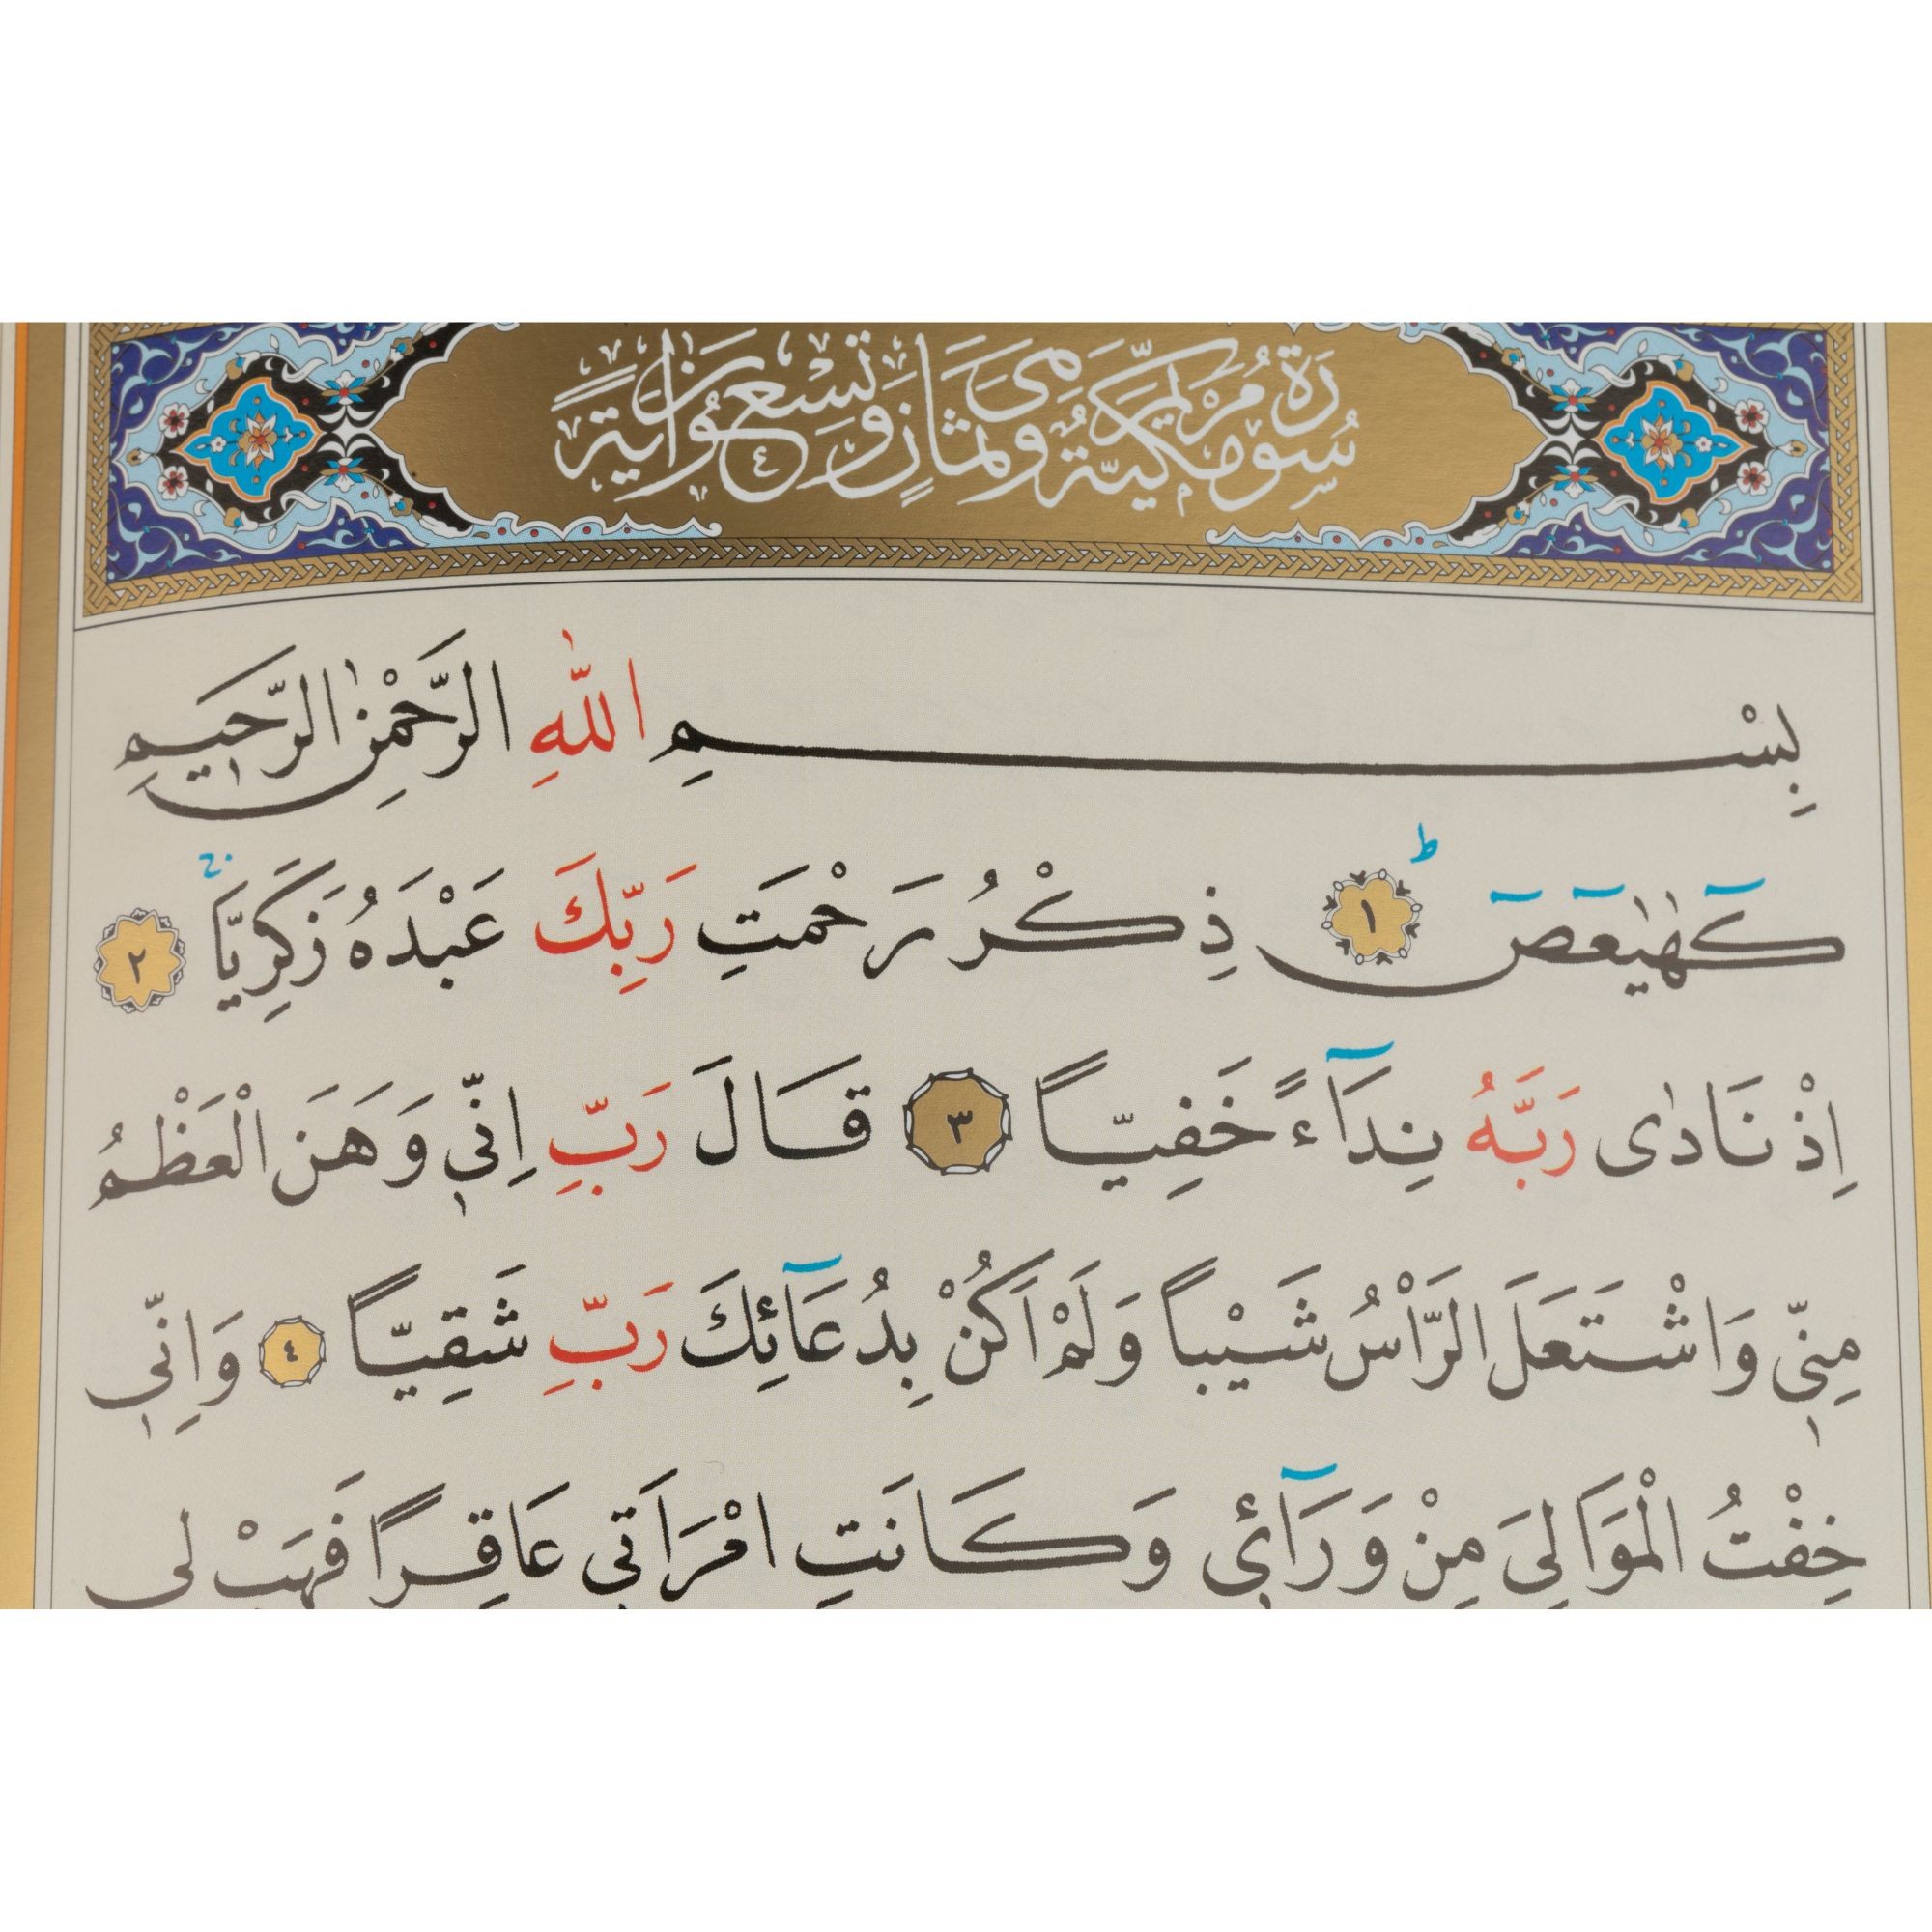 سُورَةُ مَرْيَمَ مَكِّيَّةٌ وَهِيَ ثَمَانٍ وَتِسْعُونَ اٰيَةً
بِسْمِ اللّٰهِ الرَّحْمٰنِ الرَّحٖيمِ
كٓهٰيٰعٓصٓ ﴿١﴾ ذِكْرُ رَحْمَتِ رَبِّكَ عَبْدَهُ زَكَرِيَّا ﴿٢﴾
اِذْ نَادٰى رَبَّهُ نِدَٓاءً خَفِيًّا ﴿٣﴾ قَالَ رَبِّ اِنّٖي وَهَنَ الْعَظْمُ
مِنّٖي وَاشْتَعَلَ الرَّاْسُ شَيْبًا وَلَمْ اَكُنْ بِدُعَٓائِكَ رَبِّ شَقِيًّا ﴿٤﴾ وَاِنّٖي
خِفْتُ الْمَوَالِيَ مِنْ وَرَٓائٖي وَكَانَتِ امْرَاَتٖي عَاقِرًا فَهَبْ لٖي